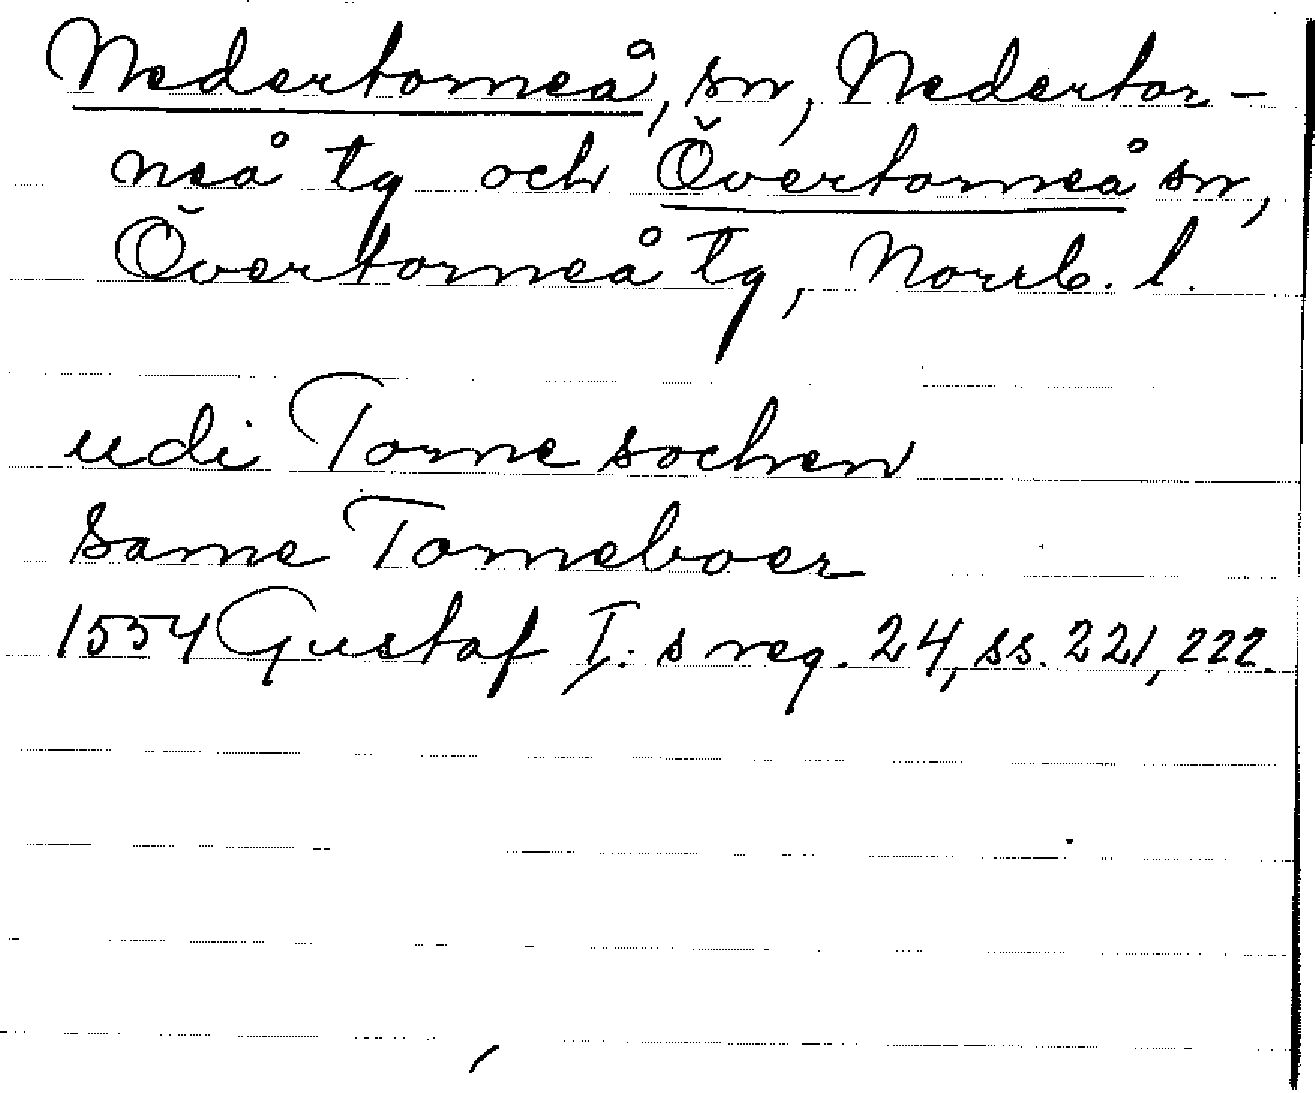 Nedertorneå, sn, Nedertor-
neå tg och Övertorneå sn,
Övertorneå tg, Norrb. l.
udi Torne sochen
Same Torneboer
1554 Gustaf I:s reg. 24, ss. 221, 222.